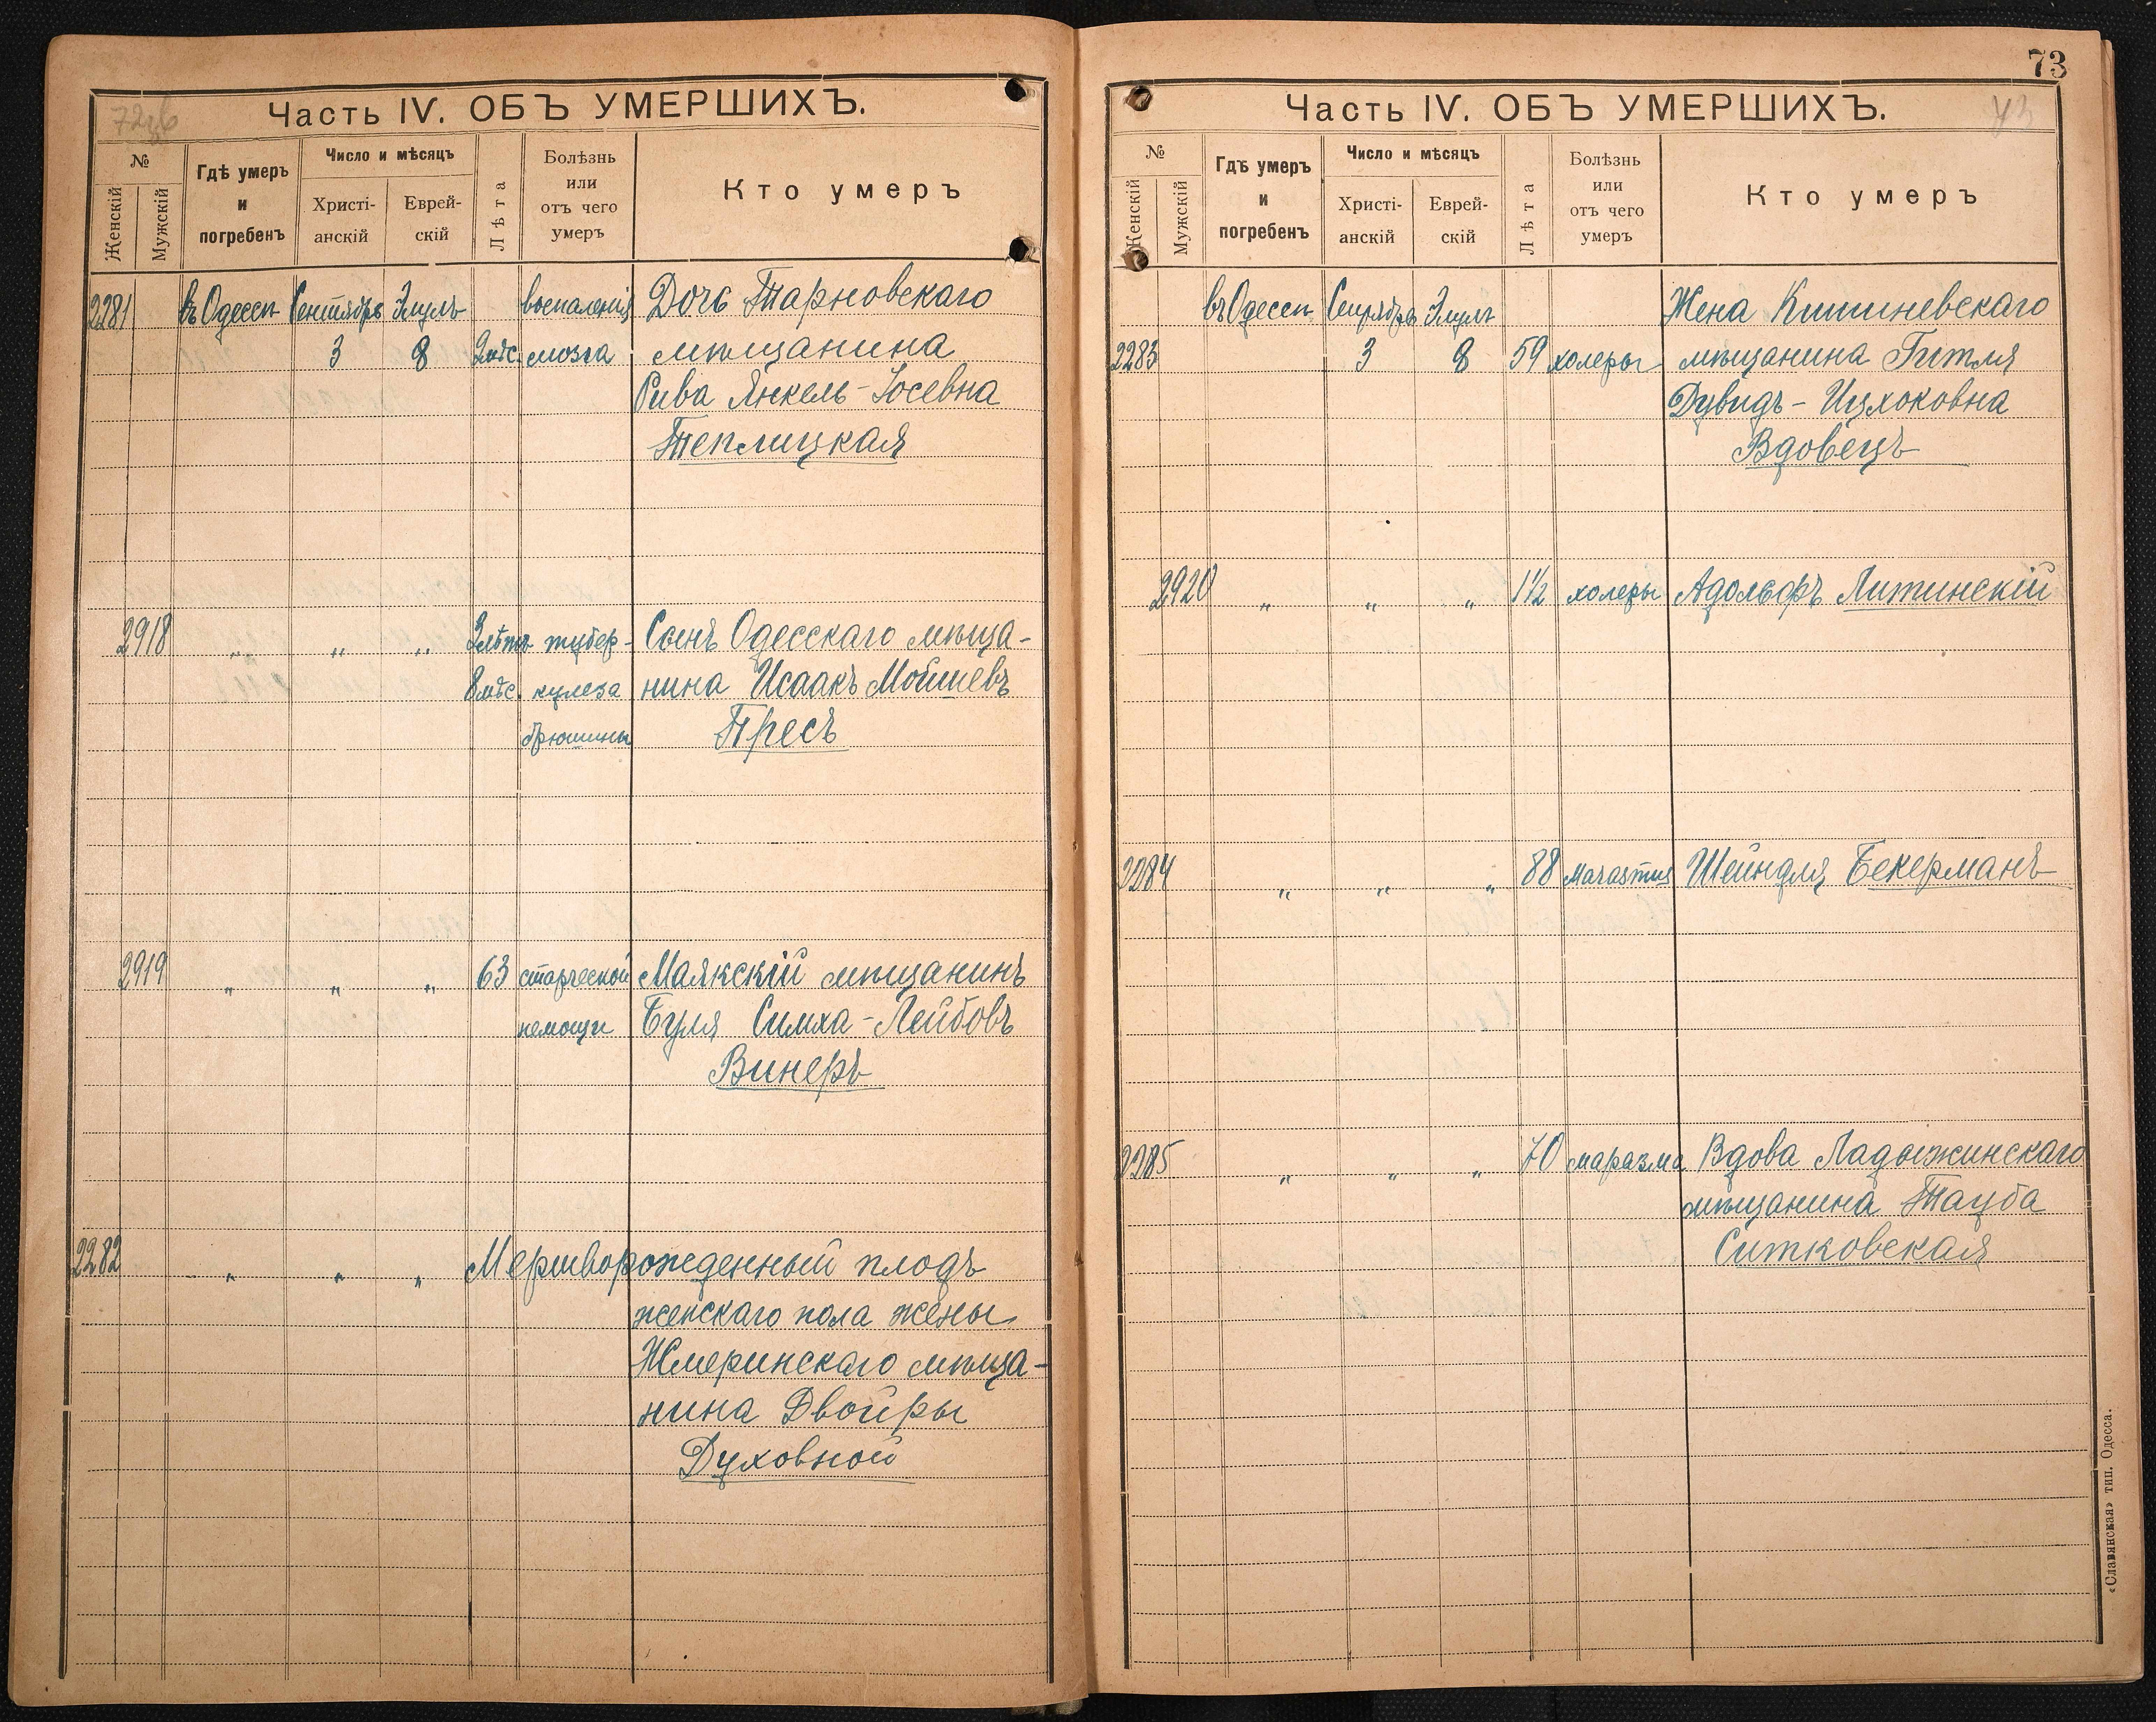 72об
Часть IV. ОБЪ УМЕРШИХЪ.
№
Женскій
Мужскій
Гдѣ умеръ
и
погребенъ
Число и мѣсяцъ
Христі-
анскій
Еврей-
скій
Лѣта
Болѣзнь
или
отъ чего
умеръ
Кто умеръ
2281 въ Одессѣ Сентябрь Элулъ воспаленія Дочь Тарновскаго
3 8 2 мѣс. мозга мѣщанина
Рива Янкель-Іосевна
Теплицкая
2918 " " " 3 лѣтъ тубер- Сынъ Одесскаго мѣща-
8 мѣс. кулеза нина Исаакъ Мошиевъ
брюшины Пресъ
2919 " " " 63 старческой Маякскій мѣщанинъ
немощи Буля Симха-Лейбовъ
Винеръ
2282 " " " Мертворожденный плодъ
женскаго пола жены
Жмеринскаго мѣща-
нина Двойры
Духовной
73
Часть IV. ОБЪ УМЕРШИХЪ.
73
№
Женскій
Мужскій
Гдѣ умеръ
и
погребенъ
Число и мѣсяцъ
Христі-
анскій
Еврей-
скій
Лѣта
Болѣзнь
или
отъ чего
умеръ
Кто умеръ
въ Одессѣ Сентябрь Элулъ Жена Кишиневскаго
2283 3 8 59 холеры мѣщанина Гитля
Дувидъ-Ицхоковна
Вдовецъ
2920 " " " 1½ холеры Адольфъ Литинскій
2284 " " " 88 Marasmus Шейндля Бекерманъ
2285 " " " 70 маразма Вдова Ладыжинскаго
мѣщанина Тауба
Ситковская
«Славянская» тип. Одесса.